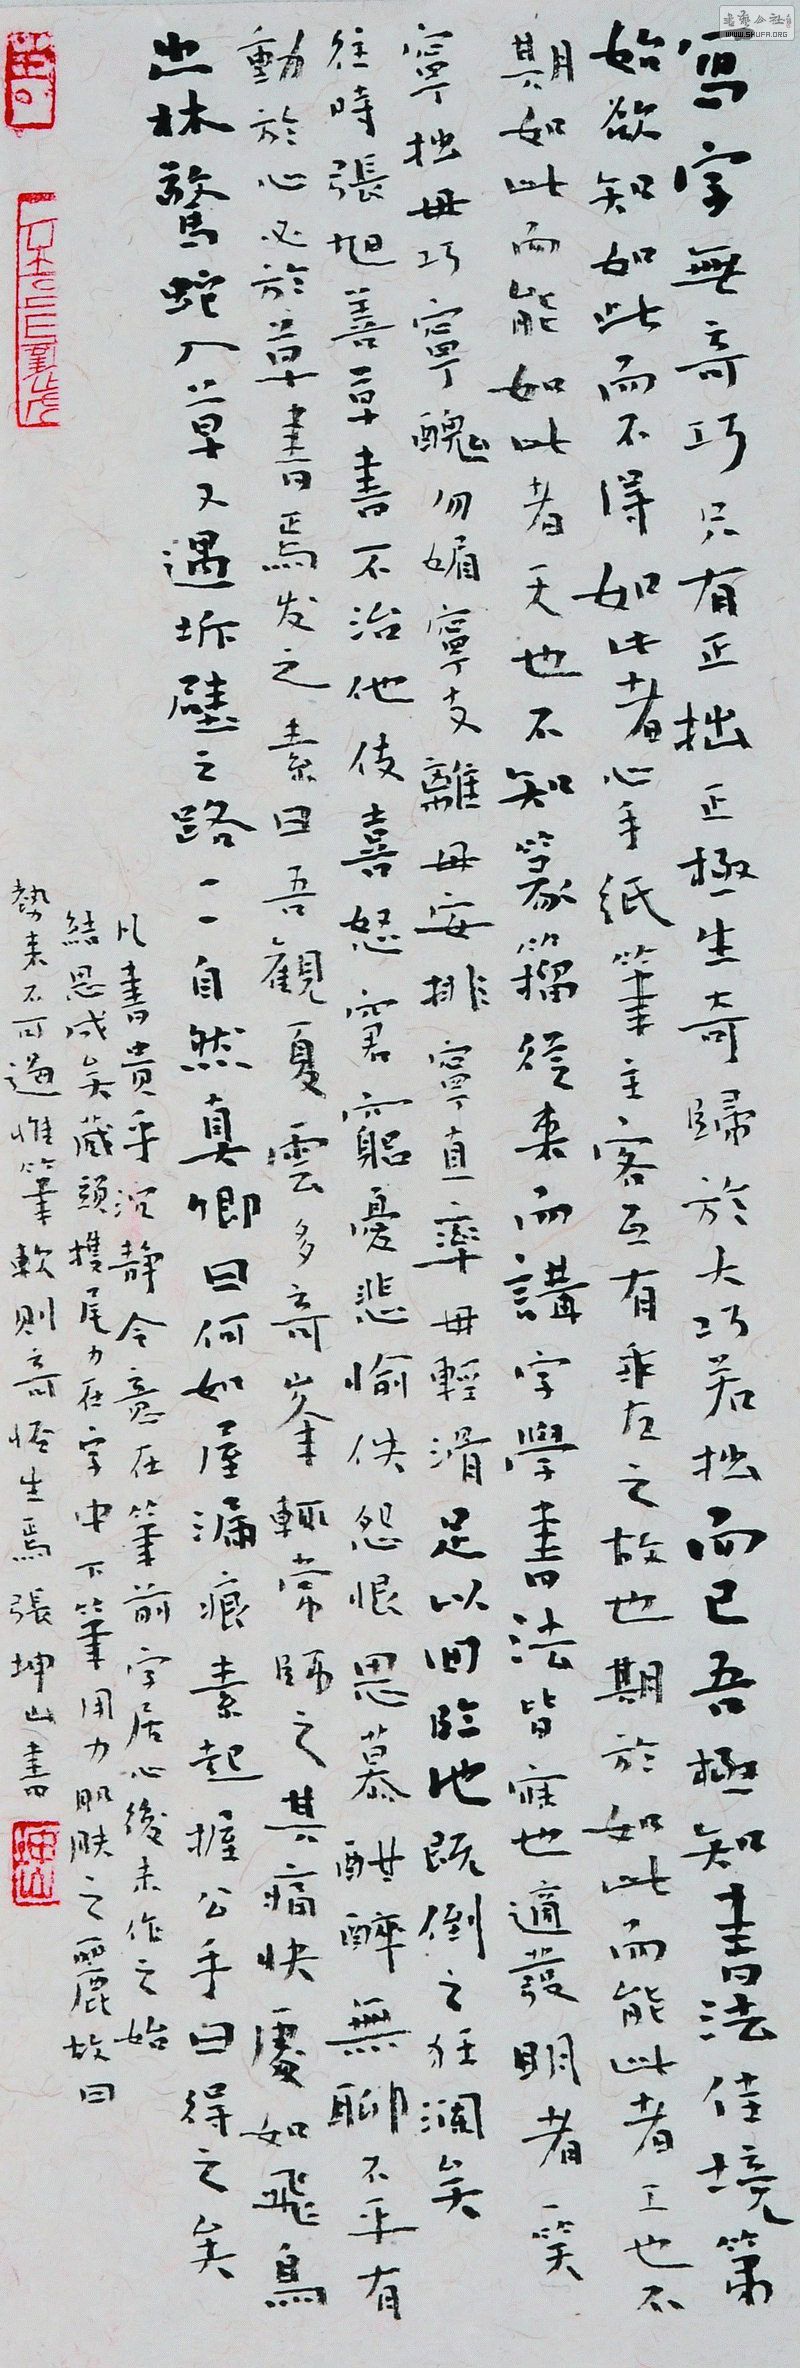 寫字無奇巧只有正拙正極生奇歸於大巧若拙而已吾極知書法佳境第
始欲知如此而不得如此者心手紙筆主客互有乖左之故也期於如此而能此者工也不
期如此而能如此者天也不知篆籀從來而講字學書法皆寐也適發明者一笑
寧拙毋巧寧醜勿媚寧支離毋安排寧直率毋輕滑足以回臨池既倒之狂瀾矣
往時張旭善草書不治他伎喜怒窘窮憂悲愉佚怨恨思慕酣醉無聊不平有
動於心必於草書焉发之素曰吾觀夏雲多奇峯輒常師之其痛快處如飛鳥
出林驚蛇入草又遇坼壁之路一一自然真卿曰何如屋漏痕素起握公手曰得之矣
凡書貴乎沉静令意在筆前字居心後未作之始
結思成矣藏頭護尾力在字中下筆用力肌肤之麗故曰
勢来不可遏惟筆軟則奇怪生焉張坤山書
书艺公社
WWW.SHUFA.ORG